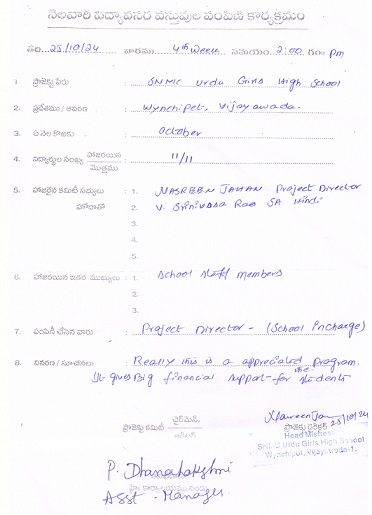 నెలవారి విద్యావసర వస్తువుల పంపిణీ కార్యక్రమం
తేది 25/10/24 వారము 4th Week సమయం 2:00 గం pm
1. ప్రాజెక్టు పేరు : SNMC Urdu Girls High School
2. ప్రదేశము / ఆవరణ : Wynchipet, Vijayawada.
3. ఏ నెల కొరకు : October
4. విద్యార్థుల సంఖ్య హాజరయిన / మొత్తము : 11/11
5. హాజరైన కమిటీ సభ్యులు : 1. NASREEN JAHAN Project Director
హోదాతో 2. V. Srinivasa Rao SA Hindi
3.
4.
5.
6. హాజరయిన ఇతర ముఖ్యులు : 1. School Staff members
2.
3.
7. పంపిణీ చేసిన వారు : Project Director - (School Incharge)
8. వివరణ / సూచనలు : Really this is a appreciated program.
It gives Big financial support for the students
ప్రాజెక్టు కమిటీ ఛైర్మెన్,
ప్రాజెక్టు డైరెక్టర్ 25/10/24
Head Mistress
Urdu Girls High School
Wynchipet, Vijayawada-1.
P. Dhanalakshmi
Asst. Manager